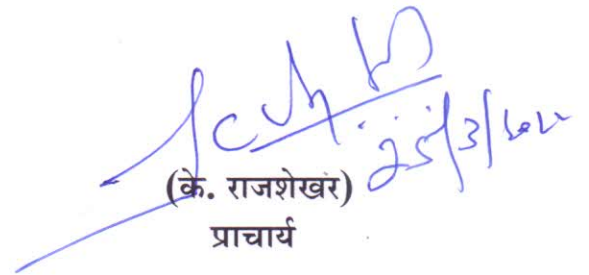 25/3/2022
(के. राजशेखर)
प्राचार्य